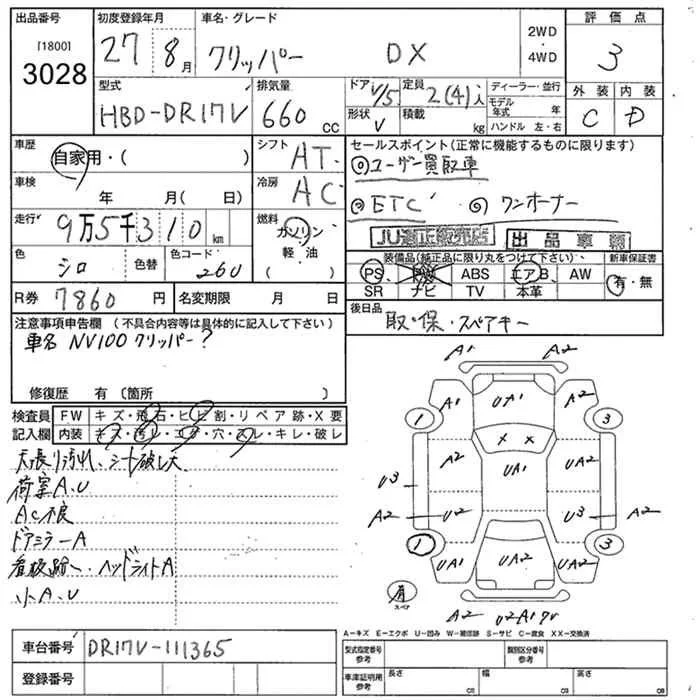 出品番号 初度登録年月 車名・グレード 2WD・4WD 評価点
[1800] 3028 27 8月 クリッパー DX 3
型式 排気量 ドア 定員 ディーラー・並行 外装 内装
HBD-DR17V 660 CC 1/5 2(4)i モデル年式 年 C D
形状 V 積載 kg ハンドル 左・右
車歴 自家用・( ) シフト AT. セールスポイント(正常に機能するものに限ります)
◎ユーザー買取車
車検 年 月(日) 冷房 AC
◎ETC ◎ワンオーナー
走行 9万5千310km 燃料 ガソリン 軽・油 ( )
JU適正販売店 出品車輌
色 シロ 色替 色コード 260
装備品(純正品に限り丸をつけて下さい) 新車保証書
PS PW ABS エアB AW 有・無
SR ナビ TV 本革
R券 7860円 名変期限 月 日
後日品 取・保・スペアキー
注意事項申告欄 (不具合内容等は具体的に記入して下さい)
車名 NV100 クリッパー?
修復歴 有 (箇所 )
検査員記入欄 FW キズ・飛石・ヒビ割・リペア跡・X要
内装 キズ・汚レ・コゲ・穴・スレ・キレ・破レ
天張り汚れ、シート破し大
荷室A、U
AC不良
ドアミラーA
看板跡、ヘッドライトA
小A、U
A1 A2
A1 UA1 A2
1 3
A2 X X UA2
U3 UA1
A2 U2 U3 A2
1 3
UA1 UA2 UA1
有 スペア
A2 U2A1
A-キズ E-エクボ U-凹み W-補修跡 S-サビ C-腐食 XX-交換済
車台番号 DR17V-111365
型式指定番号 参考 類別区分番号 参考
登録番号
車庫証明用 参考 長さ cm 幅 cm 高さ cm